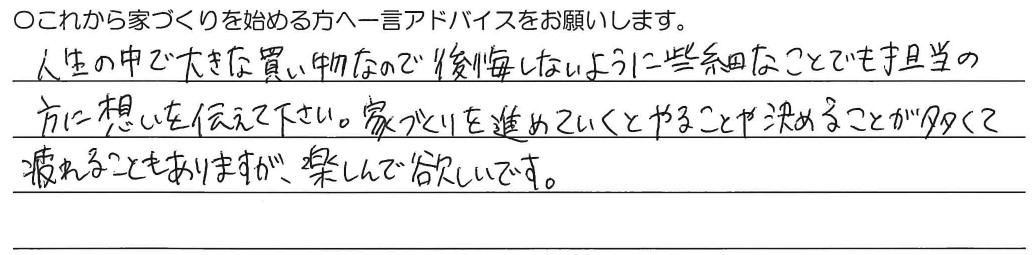 ○これから家づくりを始める方へ一言アドバイスをお願いします。
人生の中で大きな買い物なので後悔しないように些細なことでも担当の
方に想いを伝えて下さい。家づくりを進めていくとやることや決めることが多くて
疲れることもありますが、楽しんで欲しいです。